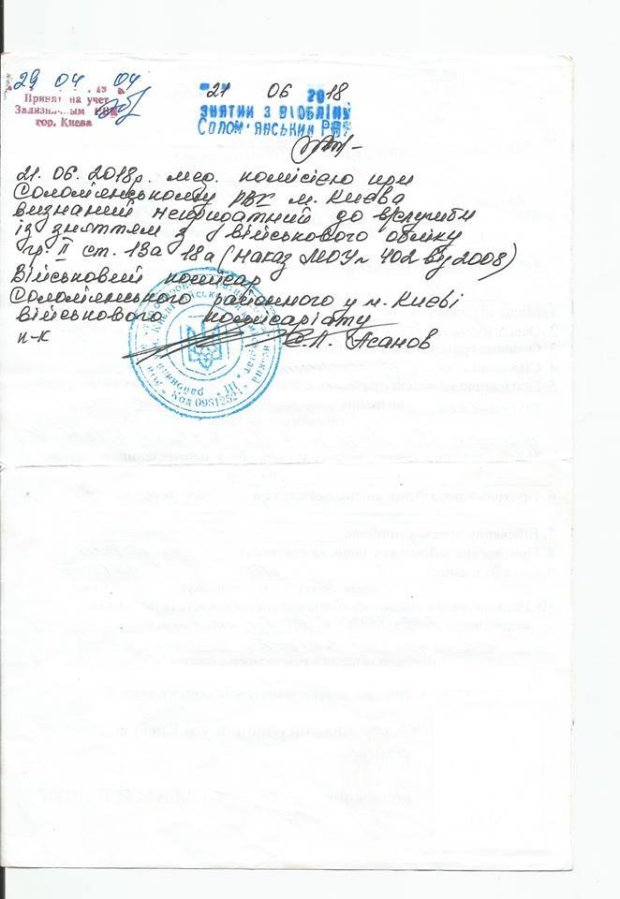 29 04 04
Принят на учет
гор. Киева
21 06 2018
ЗНЯТИЙ З В/ОБЛІКУ
СОЛОМ'ЯНСЬКИЙ РВК
21.06.2018р. мед. комісією при
Солом'янському РВК м. Києва
визнаний непридатний до в/служби
із зняттям з військового обліку
гр. II ст. 13а 18а (Наказ МОУ № 402 від 2008)
Військовий комісар
Солом'янського районного у м. Києві
військового комісаріату
п-к С.А. Асанов